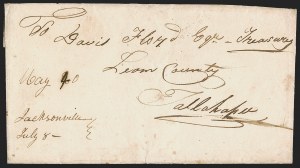 To Davis Floyd Esqr Treasury
Leon County
Tallahassee
Way 40
Jacksonville
July 8